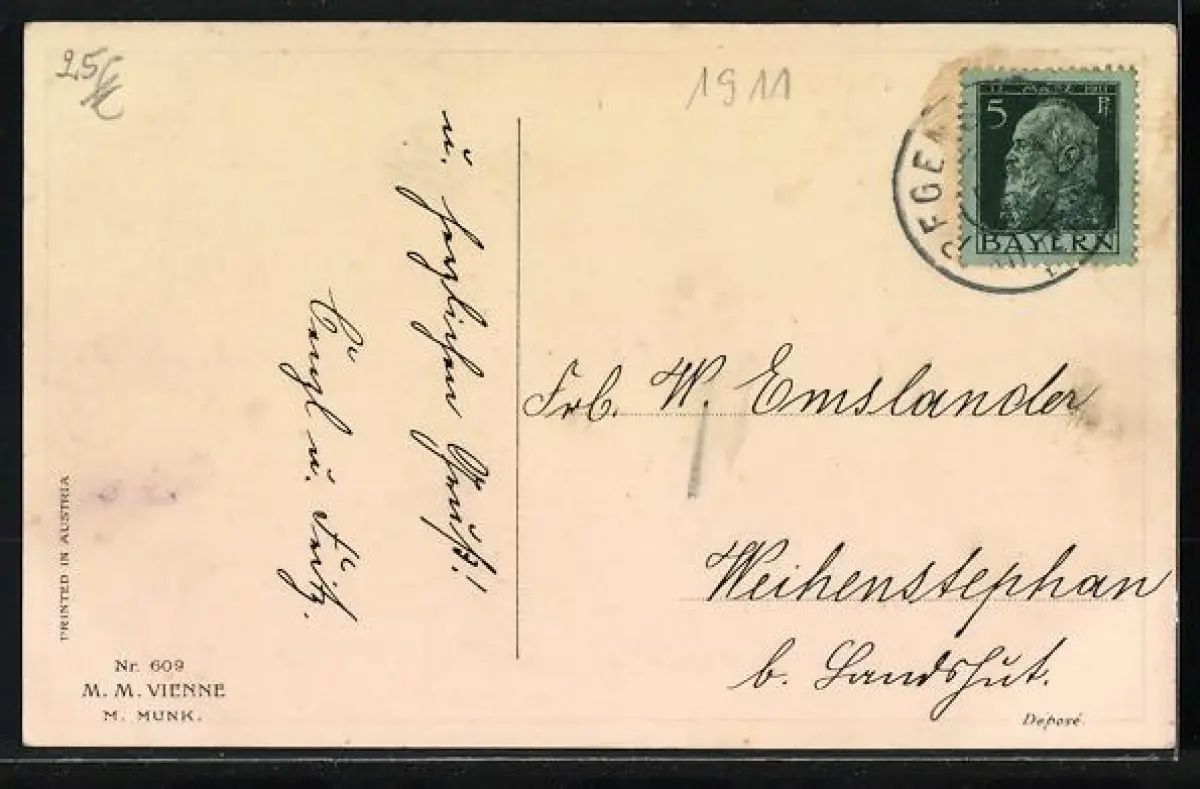 25
1911
12. MÄRZ 1911
5 Pf
BAYERN
u. herzlichen Gruß!
u. Fritz.
Frl. W. Emslander
Weihenstephan
b. Landshut.
PRINTED IN AUSTRIA
Nr. 609
M. M. VIENNE
M. MUNK.
Déposé